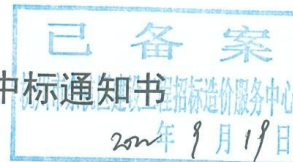 已备案
中标通知书
建设工程招标造价服务中心
年9月19日